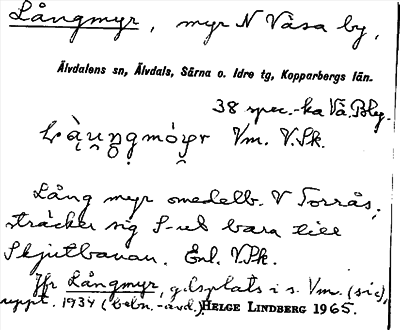 Långmyr, myr N Våsa by,
Älvdalens sn, Älvdals, Särna o. Idre tg, Kopparbergs län.
38 spec.-ka Vä. Bleg.
Vm. V.Sk.
Lång myr omedelb. V Torrås;
sträcker sig S-ut bara till
Skjutbanan. Enl. V.Sk.
Jfr Långmyr, g.lsplats i s. Vm. (sic),
uppt. 1934 (bebn.-avd.) HELGE LINDBERG 1965.